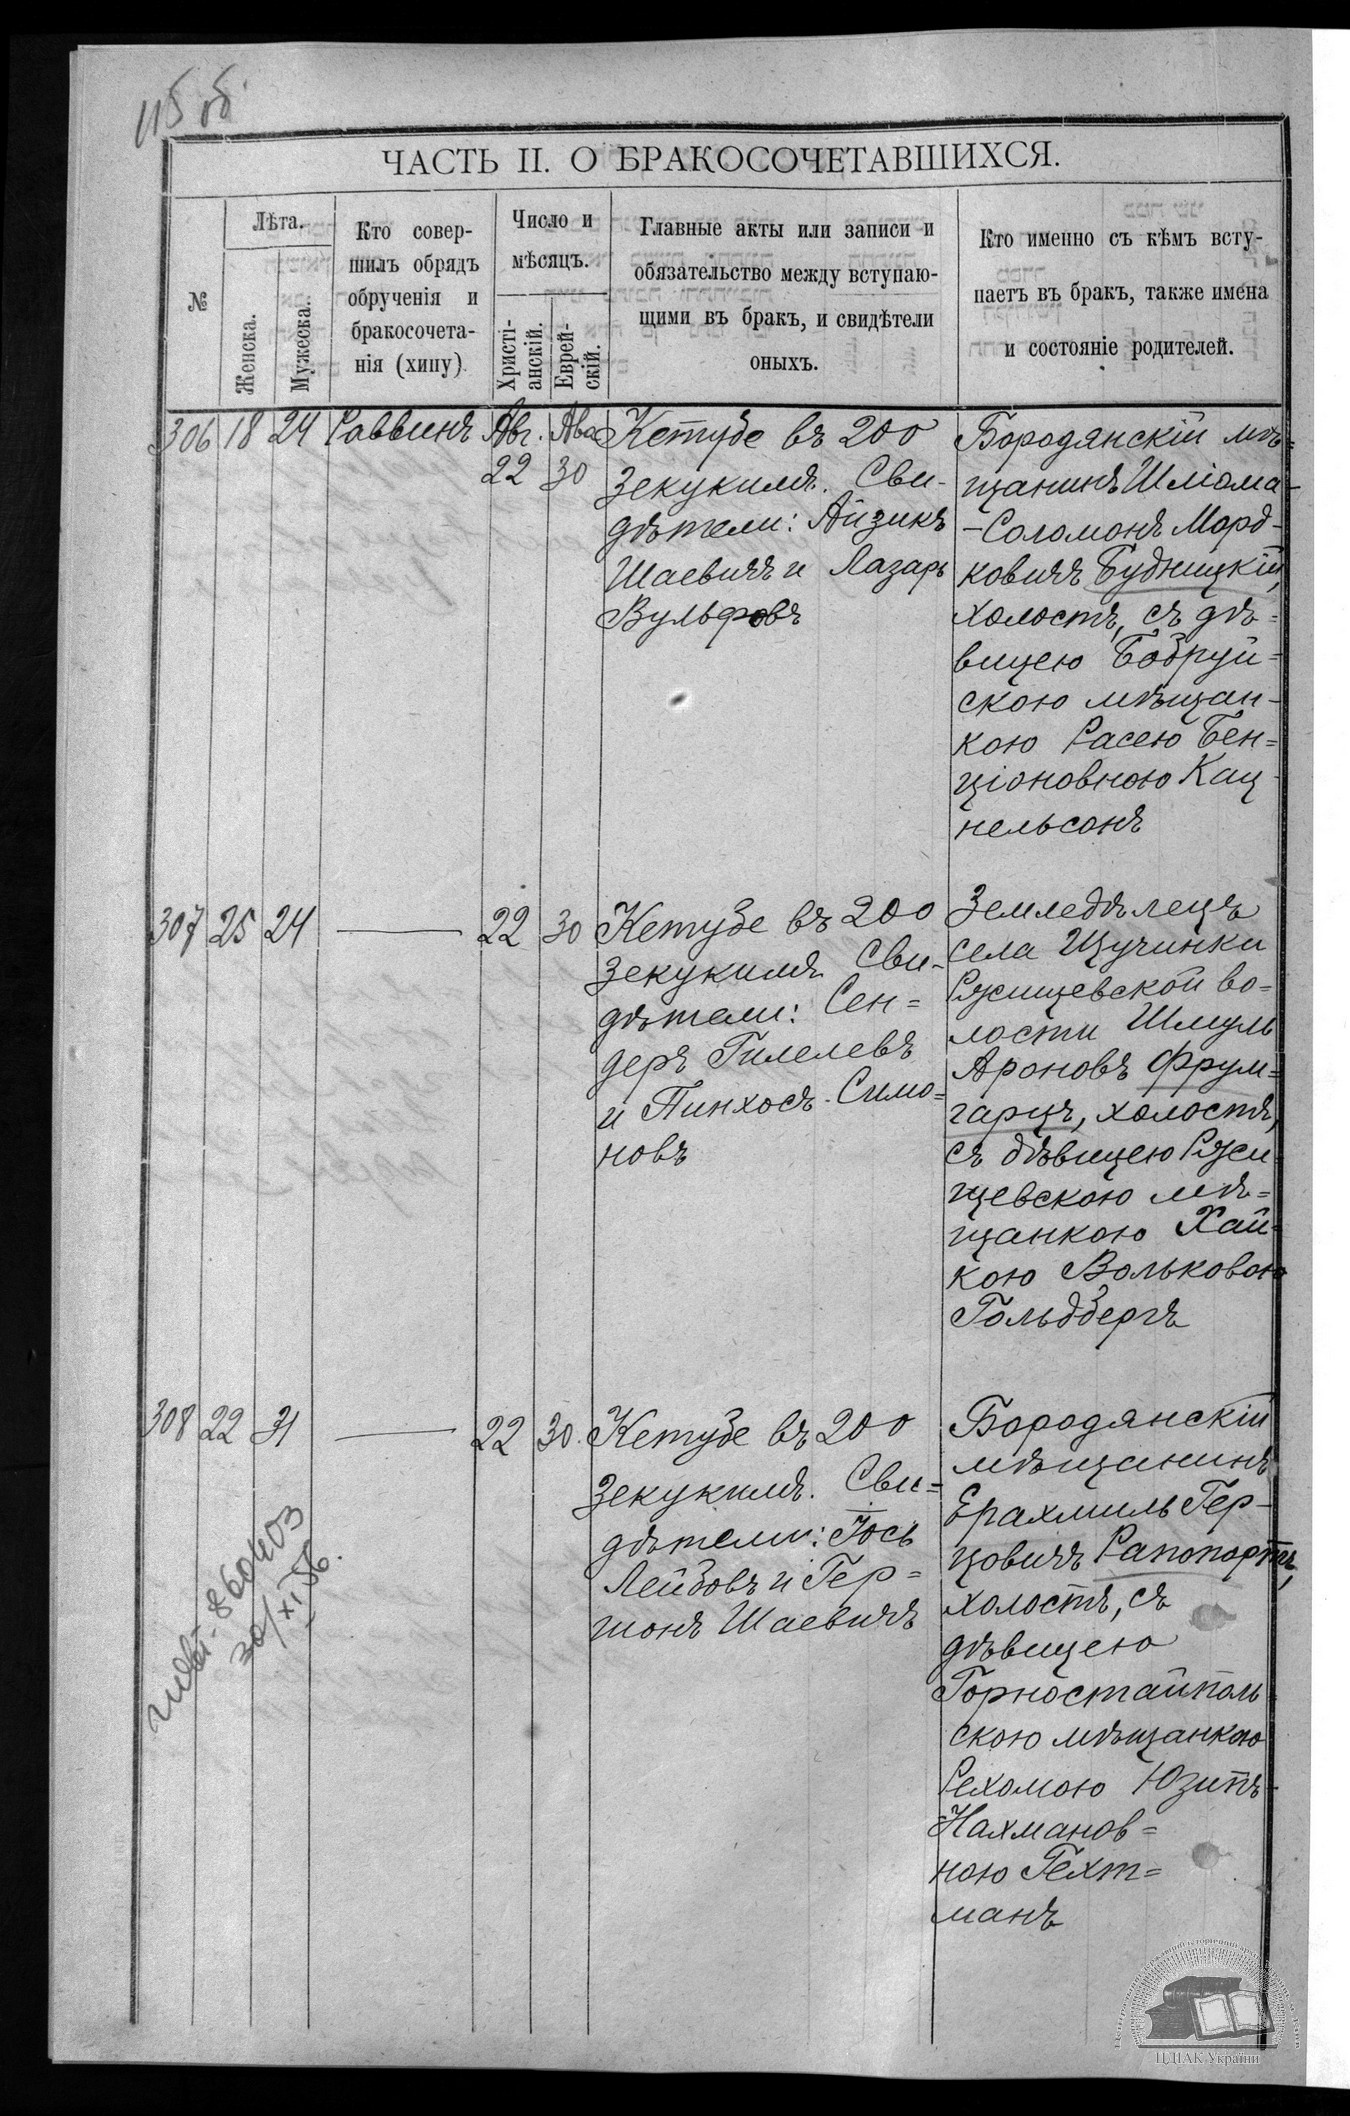 115 об.
ЧАСТЬ II. О БРАКОСОЧЕТАВШИХСЯ.
№
Лѣта.
Женска.
Мужеска.
Кто совер-
шилъ обрядъ
обрученія и
бракосочета-
нія (хипу)
Число и
мѣсяцъ.
Христі-
анскій.
Еврей-
скій.
Главные акты или записи и
обязательство между вступаю-
щими въ бракъ, и свидѣтели
оныхъ.
Кто именно съ кѣмъ всту-
паетъ въ бракъ, также имена
и состояніе родителей.
306 18 24 Раввинъ Авг. Ава
22 30
Кетубе въ 200
зекукимъ. Сви-
дѣтели: Айзикъ
Шаевичъ и Лазарь
Вульфовъ
Бородянскій мѣ=
щанинъ Шліома-
-Соломонъ Морд-
ковичъ Будницкій,
холостъ, съ дѣ=
вицею Бобруй=
скою мѣщан-
кою Расею Бен=
ціоновною Кац-
нельсонъ
307 25 24 — 22 30
Кетубе въ 200
зекукимъ. Сви-
дѣтели: Сен=
деръ Гилелевъ
и Пинхосъ Симо=
новъ
Земледѣлецъ
села Щучинки
Ржищевской во=
лости Шмуль
Ароновъ Фрум=
гарцъ, холостъ,
съ дѣвицею Ржи-
щевскою мѣ=
щанкою Хай=
кою Вольковою
Гольдбергъ
308 22 31 — 22 30.
Кетубе въ 200
зекукимъ. Сви=
дѣтели: Іось
Лейбовъ и Гер=
шонъ Шаевичъ
Бородянскій
мѣщанинъ
Ерахмиль Гер-
цовичъ Рапопортъ,
холостъ, съ
дѣвицею
Горностайполь-
скою мѣщанкою
Рехомою Юзипъ-
Нахманов=
ною Гехт=
манъ
860403
30/XI 56.
ЦДІАК України